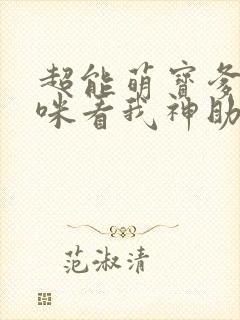 超能萌寶爹
咪看我神助
范淑清